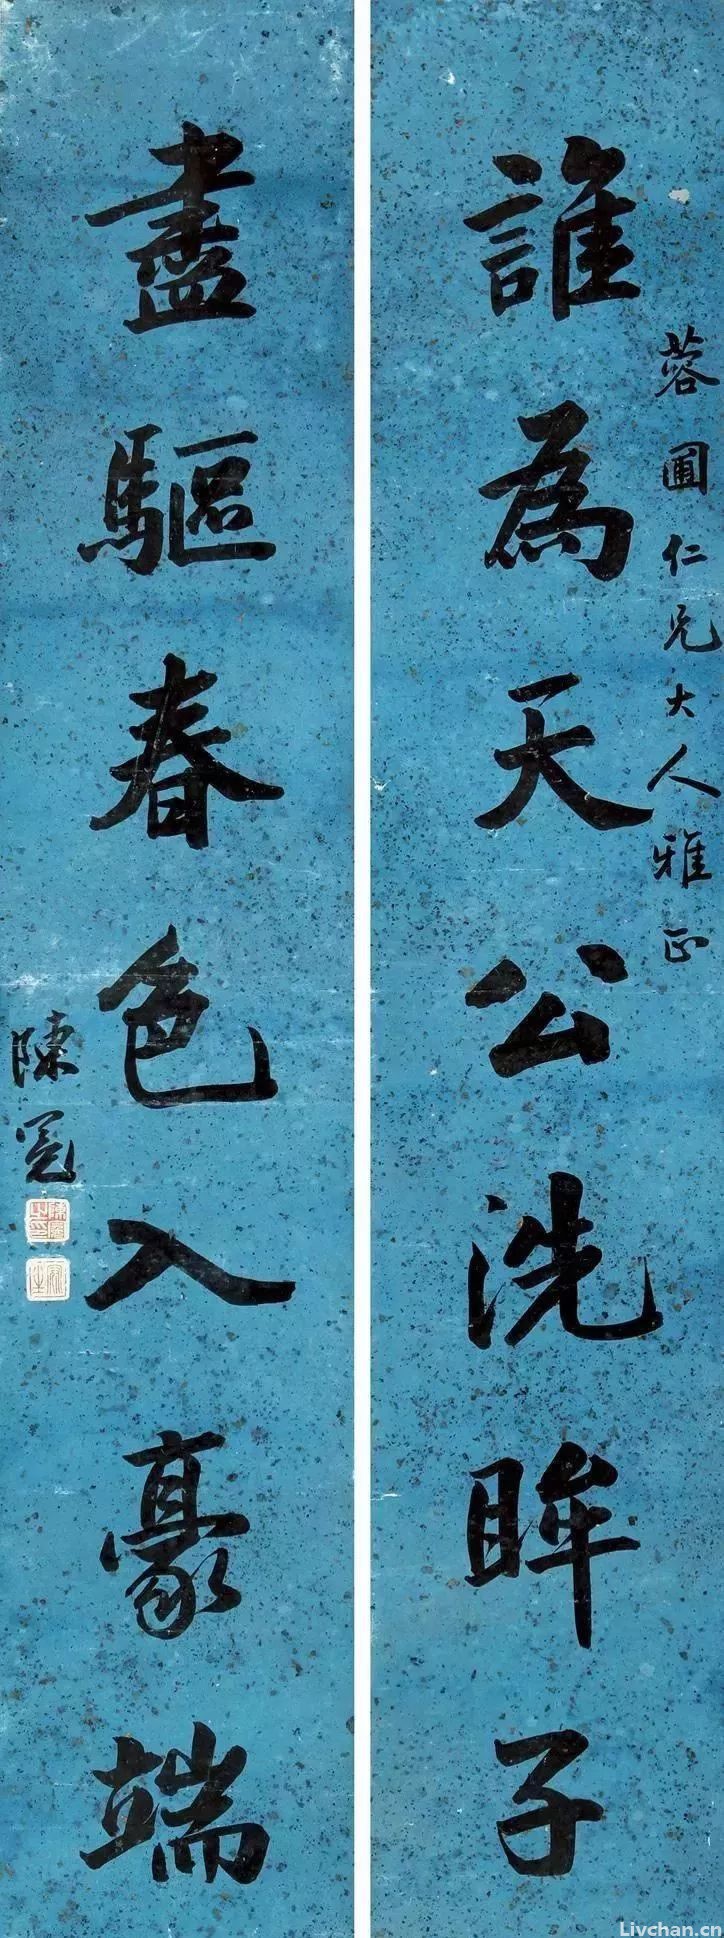 蓉圃仁兄大人雅正
誰為天公洗眸子
盡驅春色入豪端
陳冕
Livchan.cn